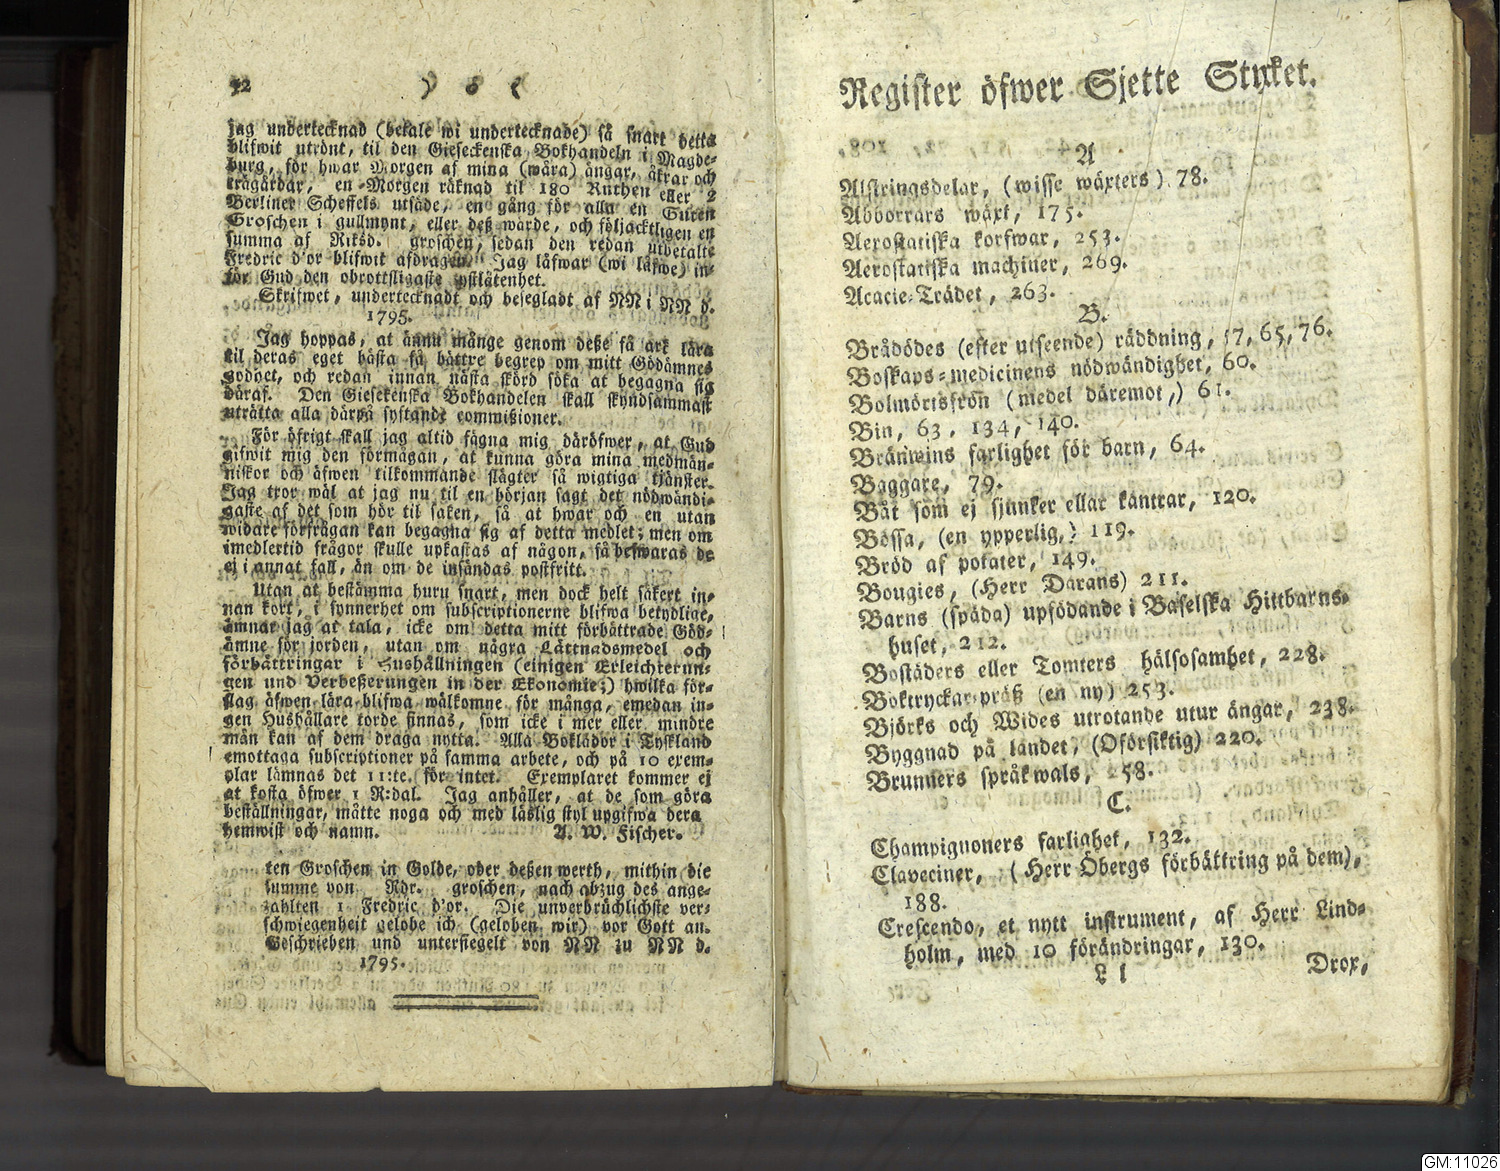 72 ) 8 (
jag undertecknad (bekale wi undertecknade) så snart detta
blifwit utrönt, til den Gieseckenska Bokhandeln i Magde-
burg, för hwar Morgen af mina (wåra) ängar, åkrar och
trägårdar, en Morgen räknad til 180 Ruthen eller 2
Berliner Scheffels utsäde, en gång för alla en Gulden
Groschen i gullmynt, eller deß wärde, och följacktligen en
summa af Riksd. groschen, sedan den redan utbetalte
Fredric d'or blifwit afdragen. Jag låfwar (wi låfwe) in-
för Gud den obrottsligaste tystlåtenhet.
Skrifwet, undertecknadt och besegladt af NN i NN d.
1795.
Jag hoppas, at ännu månge genom deße få ark lära
til deras eget bästa få bättre begrep om mitt Gödämnes
godhet, och redan innan nästa skörd söka at begagna sig
däraf. Den Giesekenska Bokhandelen skall skyndsammast
uträtta alla därpå syftande commißioner.
För öfrigt skall jag altid fägna mig däröfwer, at Gud
gifwit mig den förmågan, at kunna göra mina medmän-
niskor och äfwen tilkommande slägter så wigtiga tjänster.
Jag tror wäl at jag nu til en början sagt det nödwändi-
gaste af det som hör til saken, så at hwar och en utan
widare förfrågan kan begagna sig af detta medlet; men om
imedlertid frågor skulle upkastas af någon, så beswaras de
ej i annat fall, än om de insändas postfritt.
Utan at bestämma huru snart, men dock helt säkert in-
nan kort, i synnerhet om subscriptionerne blifwa betydlige,
ämnar jag at tala, icke om detta mitt förbättrade Göd-
ämne för jorden, utan om några Lättnadsmedel och
förbättringar i Hushållningen (einigen Erleichterun-
gen und Verbeßerungen in der Ekonomie;) hwilka för-
slag äfwen lära blifwa wälkomne för många, emedan in-
gen Hushållare torde finnas, som icke i mer eller mindre
mån kan af dem draga nytta. Alla Boklådor i Tyskland
emottaga subscriptioner på samma arbete, och på 10 exem-
plar lämnas det 11:te för intet. Exemplaret kommer ej
at kosta öfwer 1 R:dal. Jag anhåller, at de som göra
beställningar, måtte noga och med läslig styl upgifwa dera
hemwist och namn. A. W. Fischer.
ten Groschen in Golde, oder deßen werth, mithin die
summe von Rdr. groschen, nach abzug des ange-
zahlten 1 Fredric d'or. Die unverbrüchlichste ver-
schwiegenheit gelobe ich (geloben wir) vor Gott an.
Geschrieben und untersiegelt von NN zu NN d.
1795.
Register öfwer Sjette Stycket.
A
Alstringsdelar, (wisse wäxters) 78.
Abborrars wäxt, 175.
Aerostatiska korfwar, 253.
Aerostatiska machiner, 269.
Acacie-Trädet, 263.
B.
Brådödes (efter utseende) räddning, 57, 65, 76.
Boskaps-medicinens nödwändighet, 60.
Bolmörtsfrön (medel däremot,) 61.
Bin, 63, 134, 140.
Bränwins farlighet för barn, 64.
Baggare, 79.
Båt som ej sjunker ellar kantrar, 120.
Bössa, (en ypperlig,) 119.
Bröd af potater, 149.
Bougies, (Herr Darans) 211.
Barns (späda) upfödande i Baselska Hittbarns-
huset, 212.
Bostäders eller Tomters hälsosamhet, 228.
Boktryckar-präß (en ny) 253.
Björks och Wides utrotande utur ängar, 238.
Byggnad på landet, (Oförsiktig) 220.
Brunners språkwals, 258.
C.
Champignoners farlighet, 132.
Claveciner, (Herr Öbergs förbättring på dem),
188.
Crescendo, et nytt instrument, af Herr Lind-
holm, med 10 förändringar, 130.
L l Drox,
GM:11026